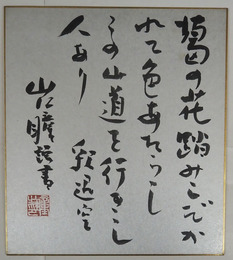 葛の花踏みしだか
れて色あたらし
この山道を行きし
人あり 釈迢空
山口騰謹書